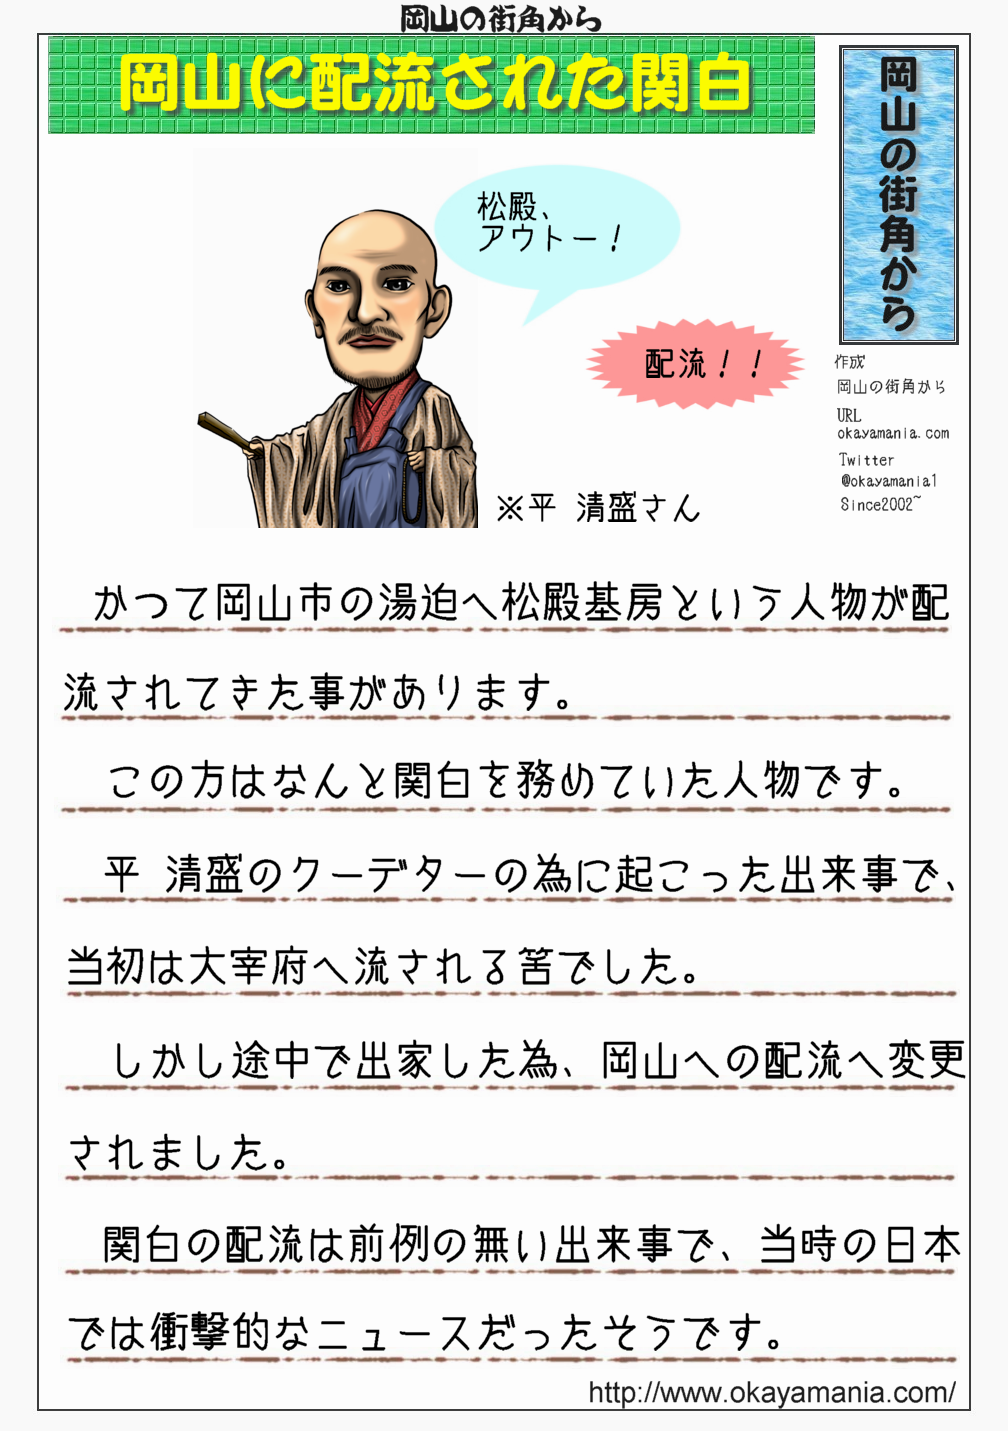 岡山の街角から
岡山に配流された関白
岡山の街角から
松殿、
アウトー！
配流！！
作成
岡山の街角から
URL
okayamania.com
Twitter
@okayamania1
Since2002~
※平 清盛さん
かつて岡山市の湯迫へ松殿基房という人物が配
流されてきた事があります。
この方はなんと関白を務めていた人物です。
平 清盛のクーデターの為に起こった出来事で、
当初は大宰府へ流される筈でした。
しかし途中で出家した為、岡山への配流へ変更
されました。
関白の配流は前例の無い出来事で、当時の日本
では衝撃的なニュースだったそうです。
http://www.okayamania.com/